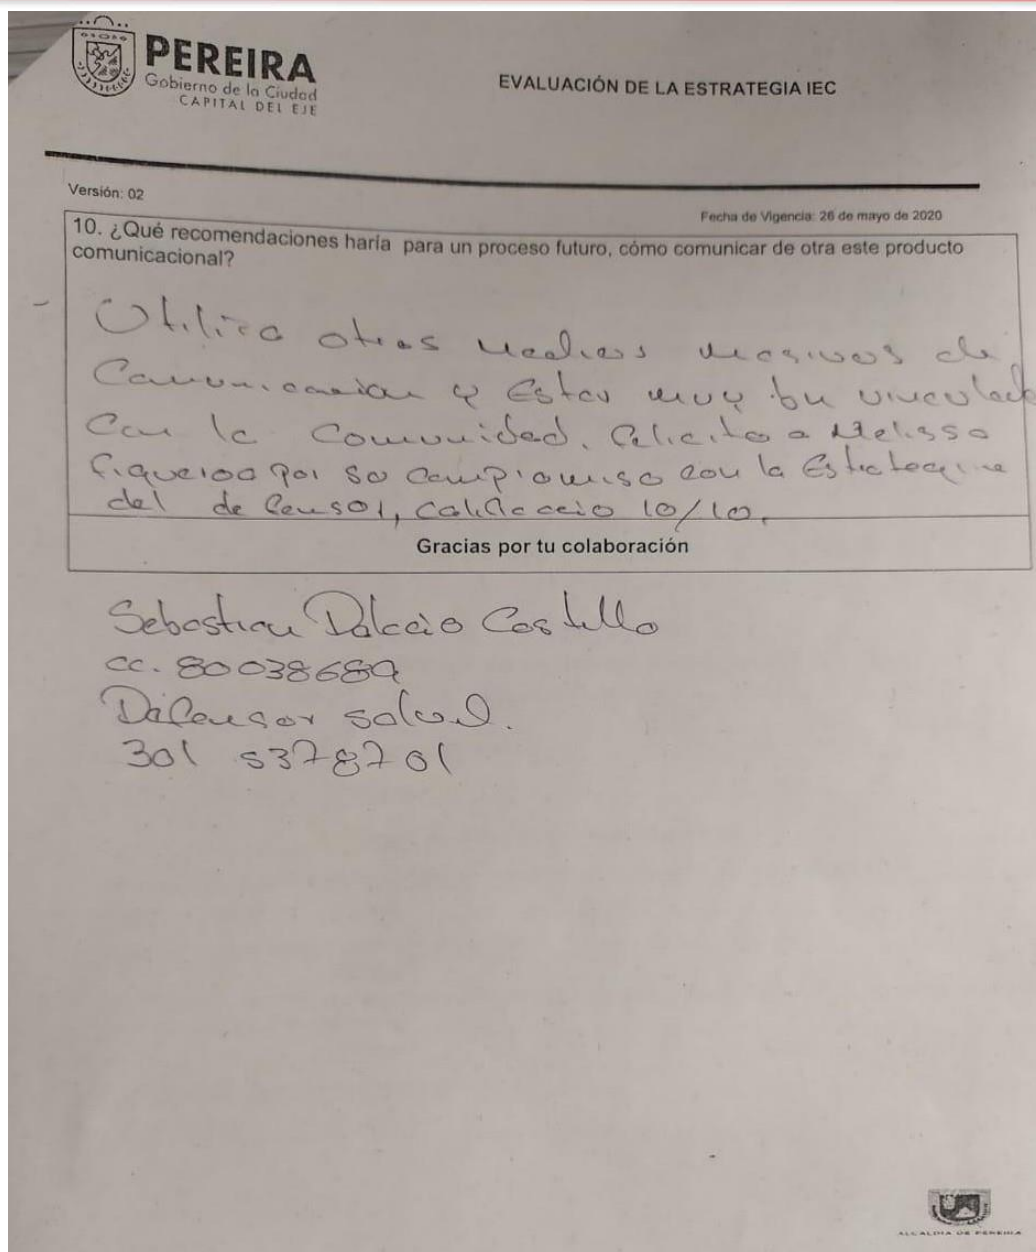 PEREIRA
Gobierno de la Ciudad
CAPITAL DEL EJE
EVALUACIÓN DE LA ESTRATEGIA IEC
Versión: 02
Fecha de Vigencia: 26 de mayo de 2020
10. ¿Qué recomendaciones haría para un proceso futuro, cómo comunicar de otra este producto
comunicacional?
otras medios masivos de
Comunicacion y Estar muy
Con la Comunidad. felicito a Melissa
por su compromiso con la
del 10/10.
Gracias por tu colaboración
Sebastian Castillo
cc. 80038689
Defensor salud.
301 5378701
ALCALDIA DE PEREIRA